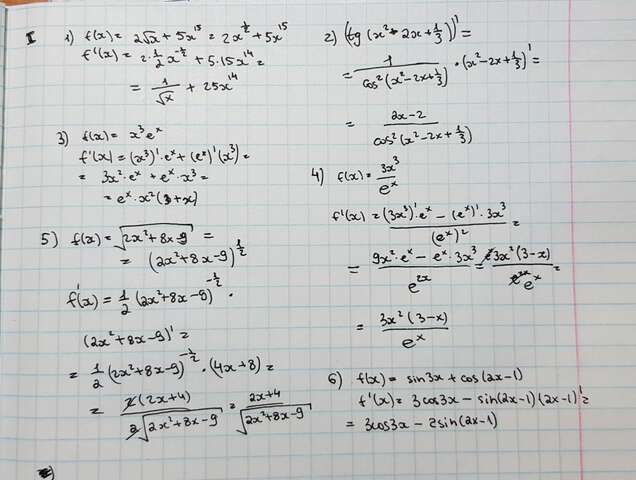 I 1) f(x) = 2√x + 5x¹⁵ = 2x^½ + 5x¹⁵
f'(x) = 2·½x^(-½) + 5·15x¹⁴ =
= 1/√x + 25x¹⁴
2) (tg(x² - 2x + 1/3))' =
= 1/cos²(x² - 2x + 1/3) · (x² - 2x + 1/3)' =
= (2x - 2)/cos²(x² - 2x + 1/3)
3) f(x) = x³eˣ
f'(x) = (x³)'·eˣ + (eˣ)'(x³) =
= 3x²·eˣ + eˣ·x³ =
= eˣ·x²(3 + x)
4) f(x) = 3x³/eˣ
f'(x) = ((3x³)'·eˣ - (eˣ)'·3x³)/(eˣ)² =
= (9x²·eˣ - eˣ·3x³)/e²ˣ = 3x²(3 - x)/eˣ =
= 3x²(3 - x)/eˣ
5) f(x) = √(2x² + 8x - 9) =
= (2x² + 8x - 9)^½
f'(x) = ½(2x² + 8x - 9)^(-½) ·
(2x² + 8x - 9)' =
= ½(2x² + 8x - 9)^(-½) · (4x + 8) =
= 2(2x + 4)/(2√(2x² + 8x - 9)) = (2x + 4)/√(2x² + 8x - 9)
6) f(x) = sin3x + cos(2x - 1)
f'(x) = 3cos3x - sin(2x - 1)(2x - 1)' =
= 3cos3x - 2sin(2x - 1)